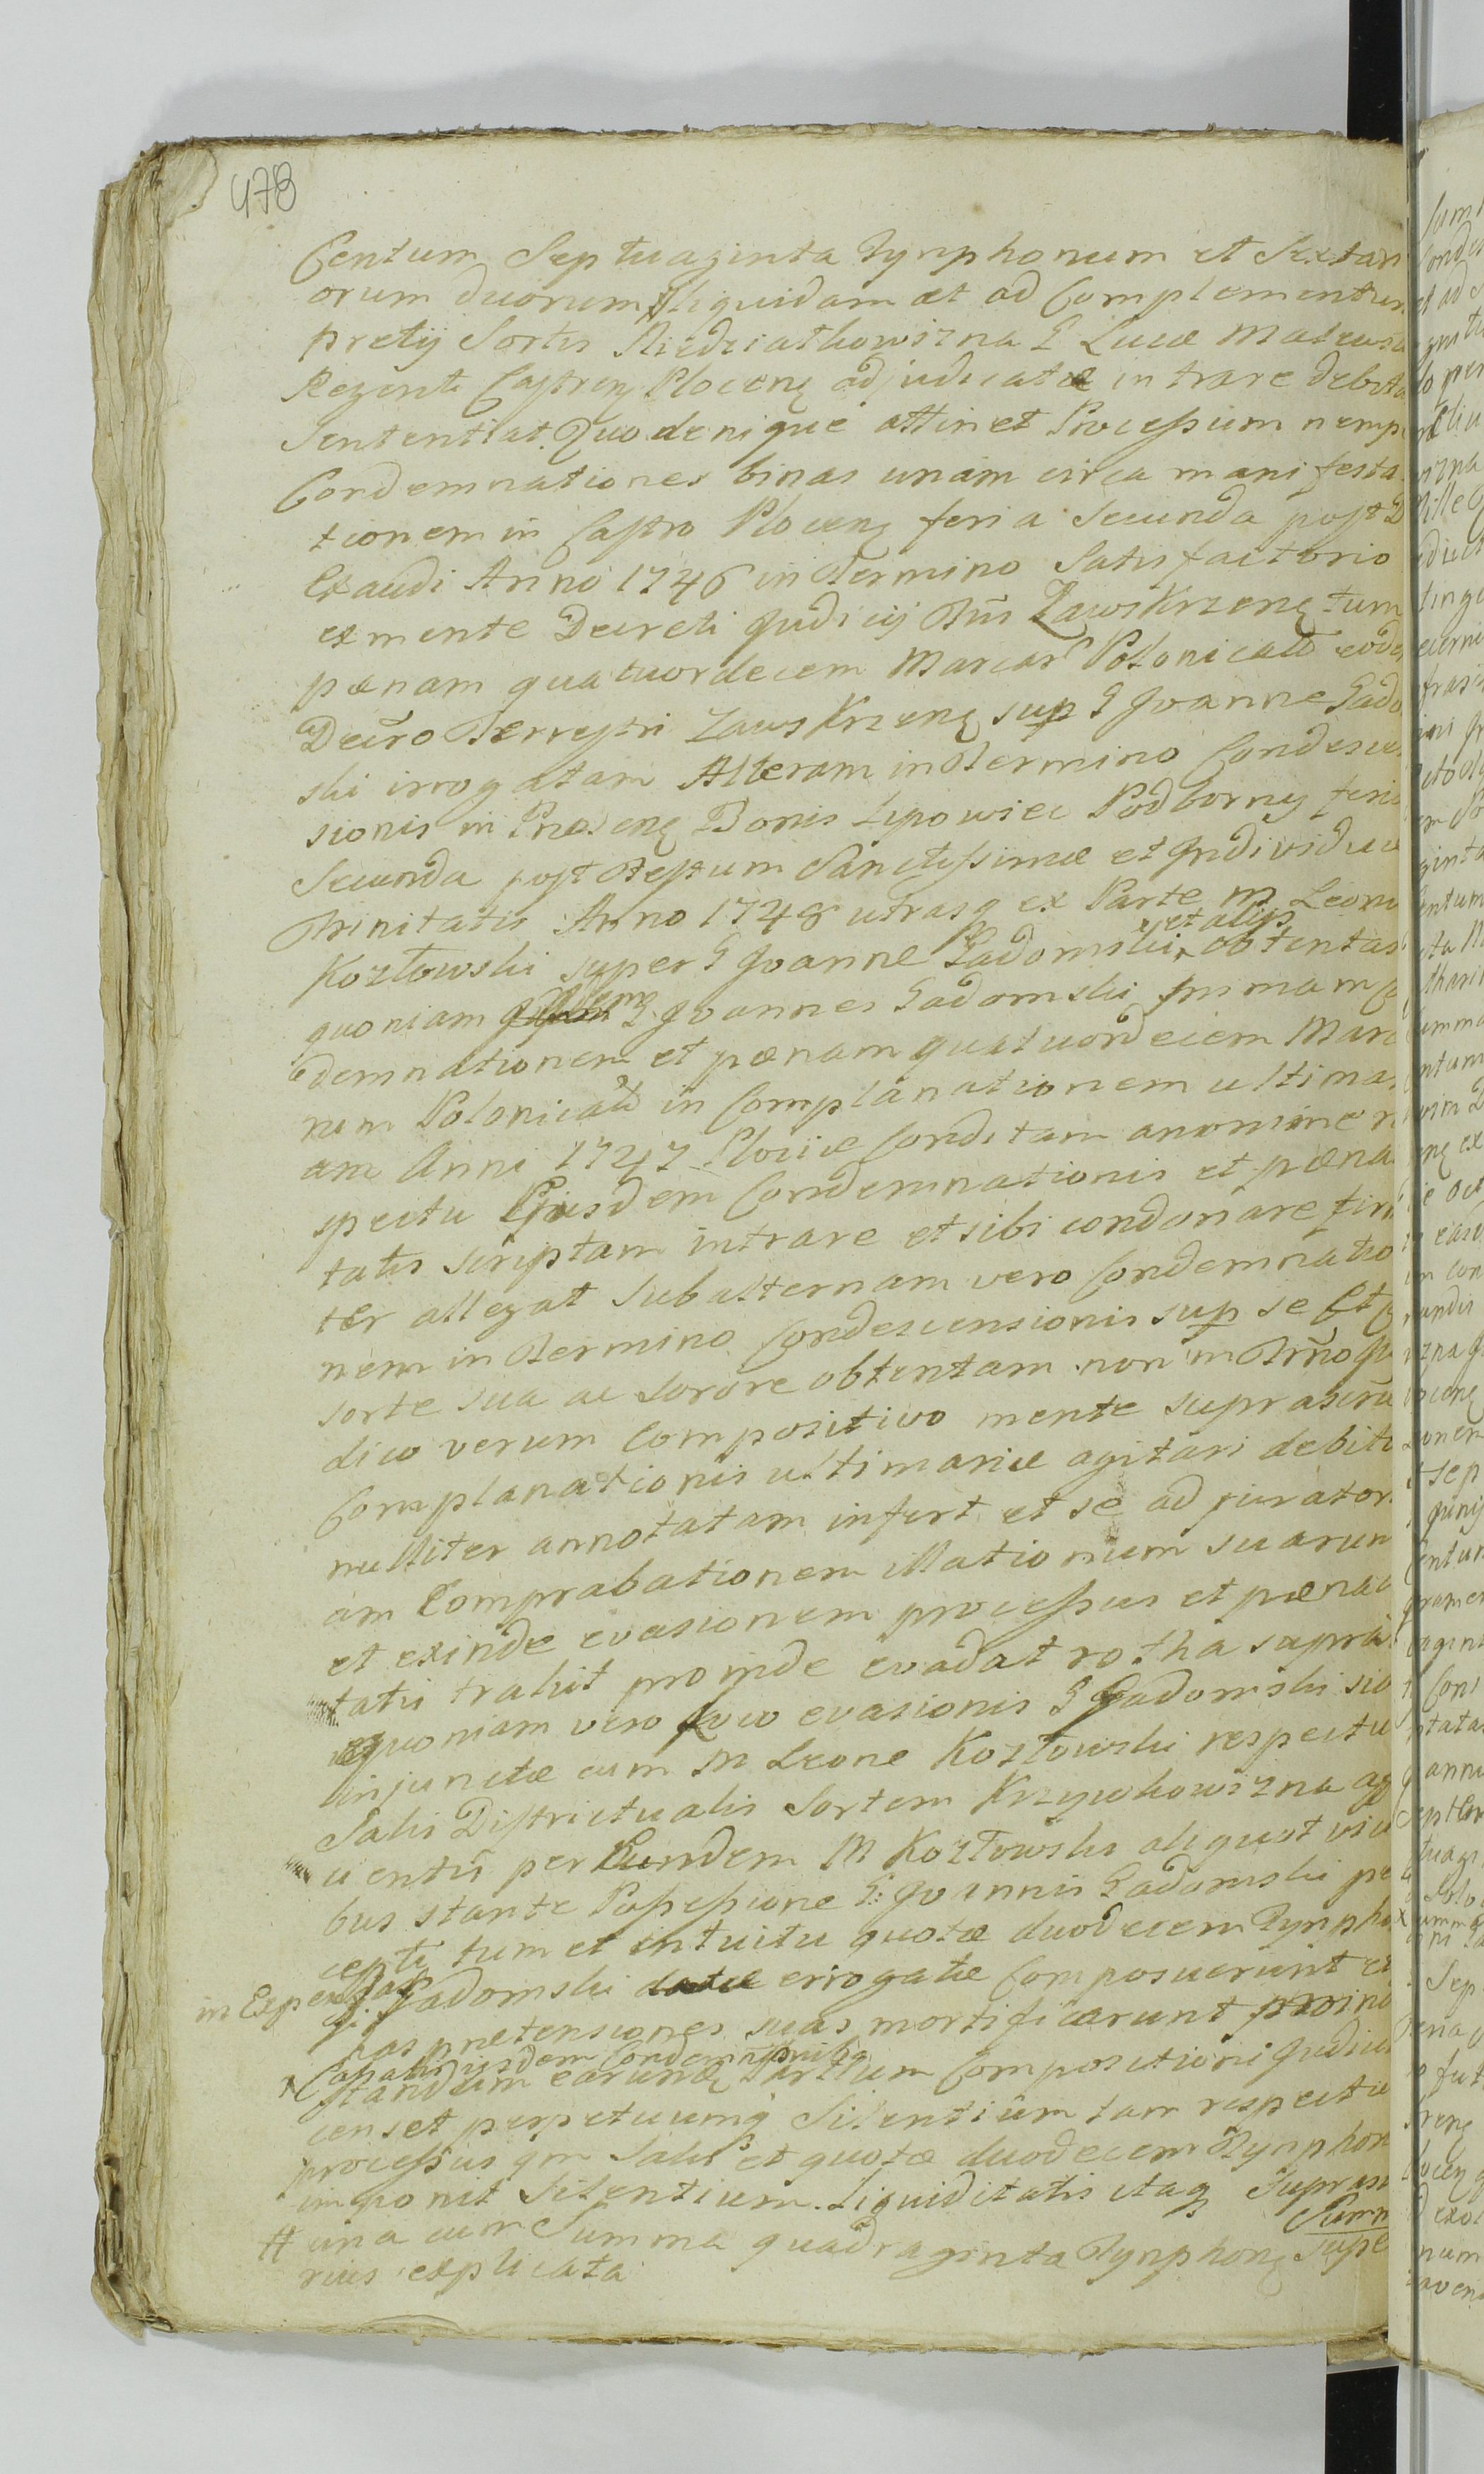 478
Centum Septuaginta Tynphonum et Sextan
orum duorum # liquidam et ad Complementum
pretij Sortis Niedziałkowizna G Lucæ Mateusz
Regenti Castren Plocen adjudicatæ intrare debita
Sententiat. Quo denique attinet Processum nempe
Condemnationes binas unam circa manifesta
tionem in Castro Plocen feria Secunda post D
Exaudi Anno 1746 in Termino Satisfactorio
ex mente Decreti Judicij Tris Zawskrzen tum
pænam quatuordecem Marcar Polonicaliu eode
Decro Terrestri Zawskrzen sup G Joanne Gado
ski irrogatam Alteram in Termino Condescen
sionis in Præsen Bonis Lipowiec Podborny feria
Secunda post Festum Sanctissimæ et Individuæ
Trinitatis Anno 1748 utrasq ex Parte M Leonis
Kozłowski super G Joanne Gadomski et alijs obtentas
quoniam G Joannes Gadomski primam Co
demnationem et pænam quatuordecem Marca
rum Polonicaliu in Complanationem ultimari
am Anni 1747 Plociæ Conditam a nomine re
spectu Ejusdem Condemnationis et pænali
tatis scriptam intrare et sibi condonare firmi
ter allegat Subalternam vero Condemnatio
nem in Termino Condescensionis sup se et
sorte sua ac sorore obtentam non in Trno Ju
dico verum Compositivo mente suprascru
Complanationis ultimariæ agitari debito
nulliter annotatam infert et se ad jurator
am Comprobationem illationum suarum
et exinde evasionem processus et pænali
tatis trahit proinde evadat rotha supra
quoniam vero loco evasionis G Gadomski sic
injunctæ cum M Leone Kozłowski respectu
Salis Districtualis Sortem Krzywkowizna aff
uentis per Eundem M Kozłowski aliquot vici
bus stante Possessione G: Joannis Gadomski per
cepti tum et intuitu quotæ duodecem Tynpho
in Expensas G. Gadomski erogatæ Composuerunt et
has prætensiones suas mortificarunt proind
Cassatis iisdem Condemnonibus
standum earundem Partium Compositioni Judicium
censet perpetuumq Silentium tam respectu
processus qm Salis et quotæ duodecem Tynphon
imponit Silentium. Liquiditatis itaq Supras
Summ
# una cum Summa quadraginta Tynphon supe
rius explicata